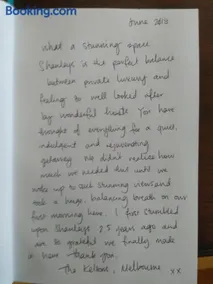 Booking.com
June 2016
What a stunning space.
Shenleys is the perfect balance
between private luxury and
feeling so well looked after
by wonderful hosts. You have
thought of everything for a quiet,
indulgent and rejuvenating
getaway. We didn't realise how
much we needed that until we
woke up to such stunning views and
took a huge, balancing breath on our
first morning here. I first stumbled
upon Shenleys 2.5 years ago and
am so grateful we finally made
it here. Thank you,
The Kelsons, Melbourne
xx